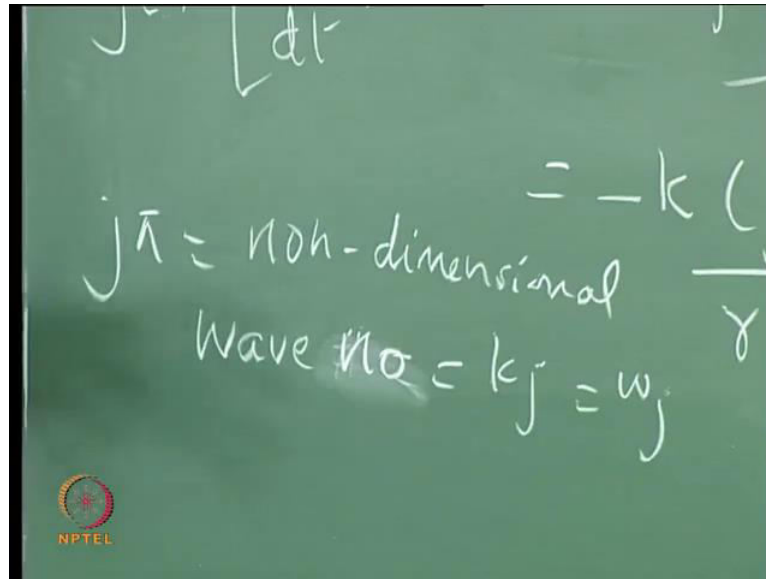 dt
= - k (
jπ = non-dimensional
γ
wave no = kj = ωj
NPTEL